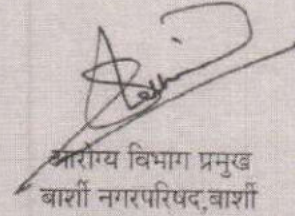 आरोग्य विभाग प्रमुख
बार्शी नगरपरिषद,बार्शी